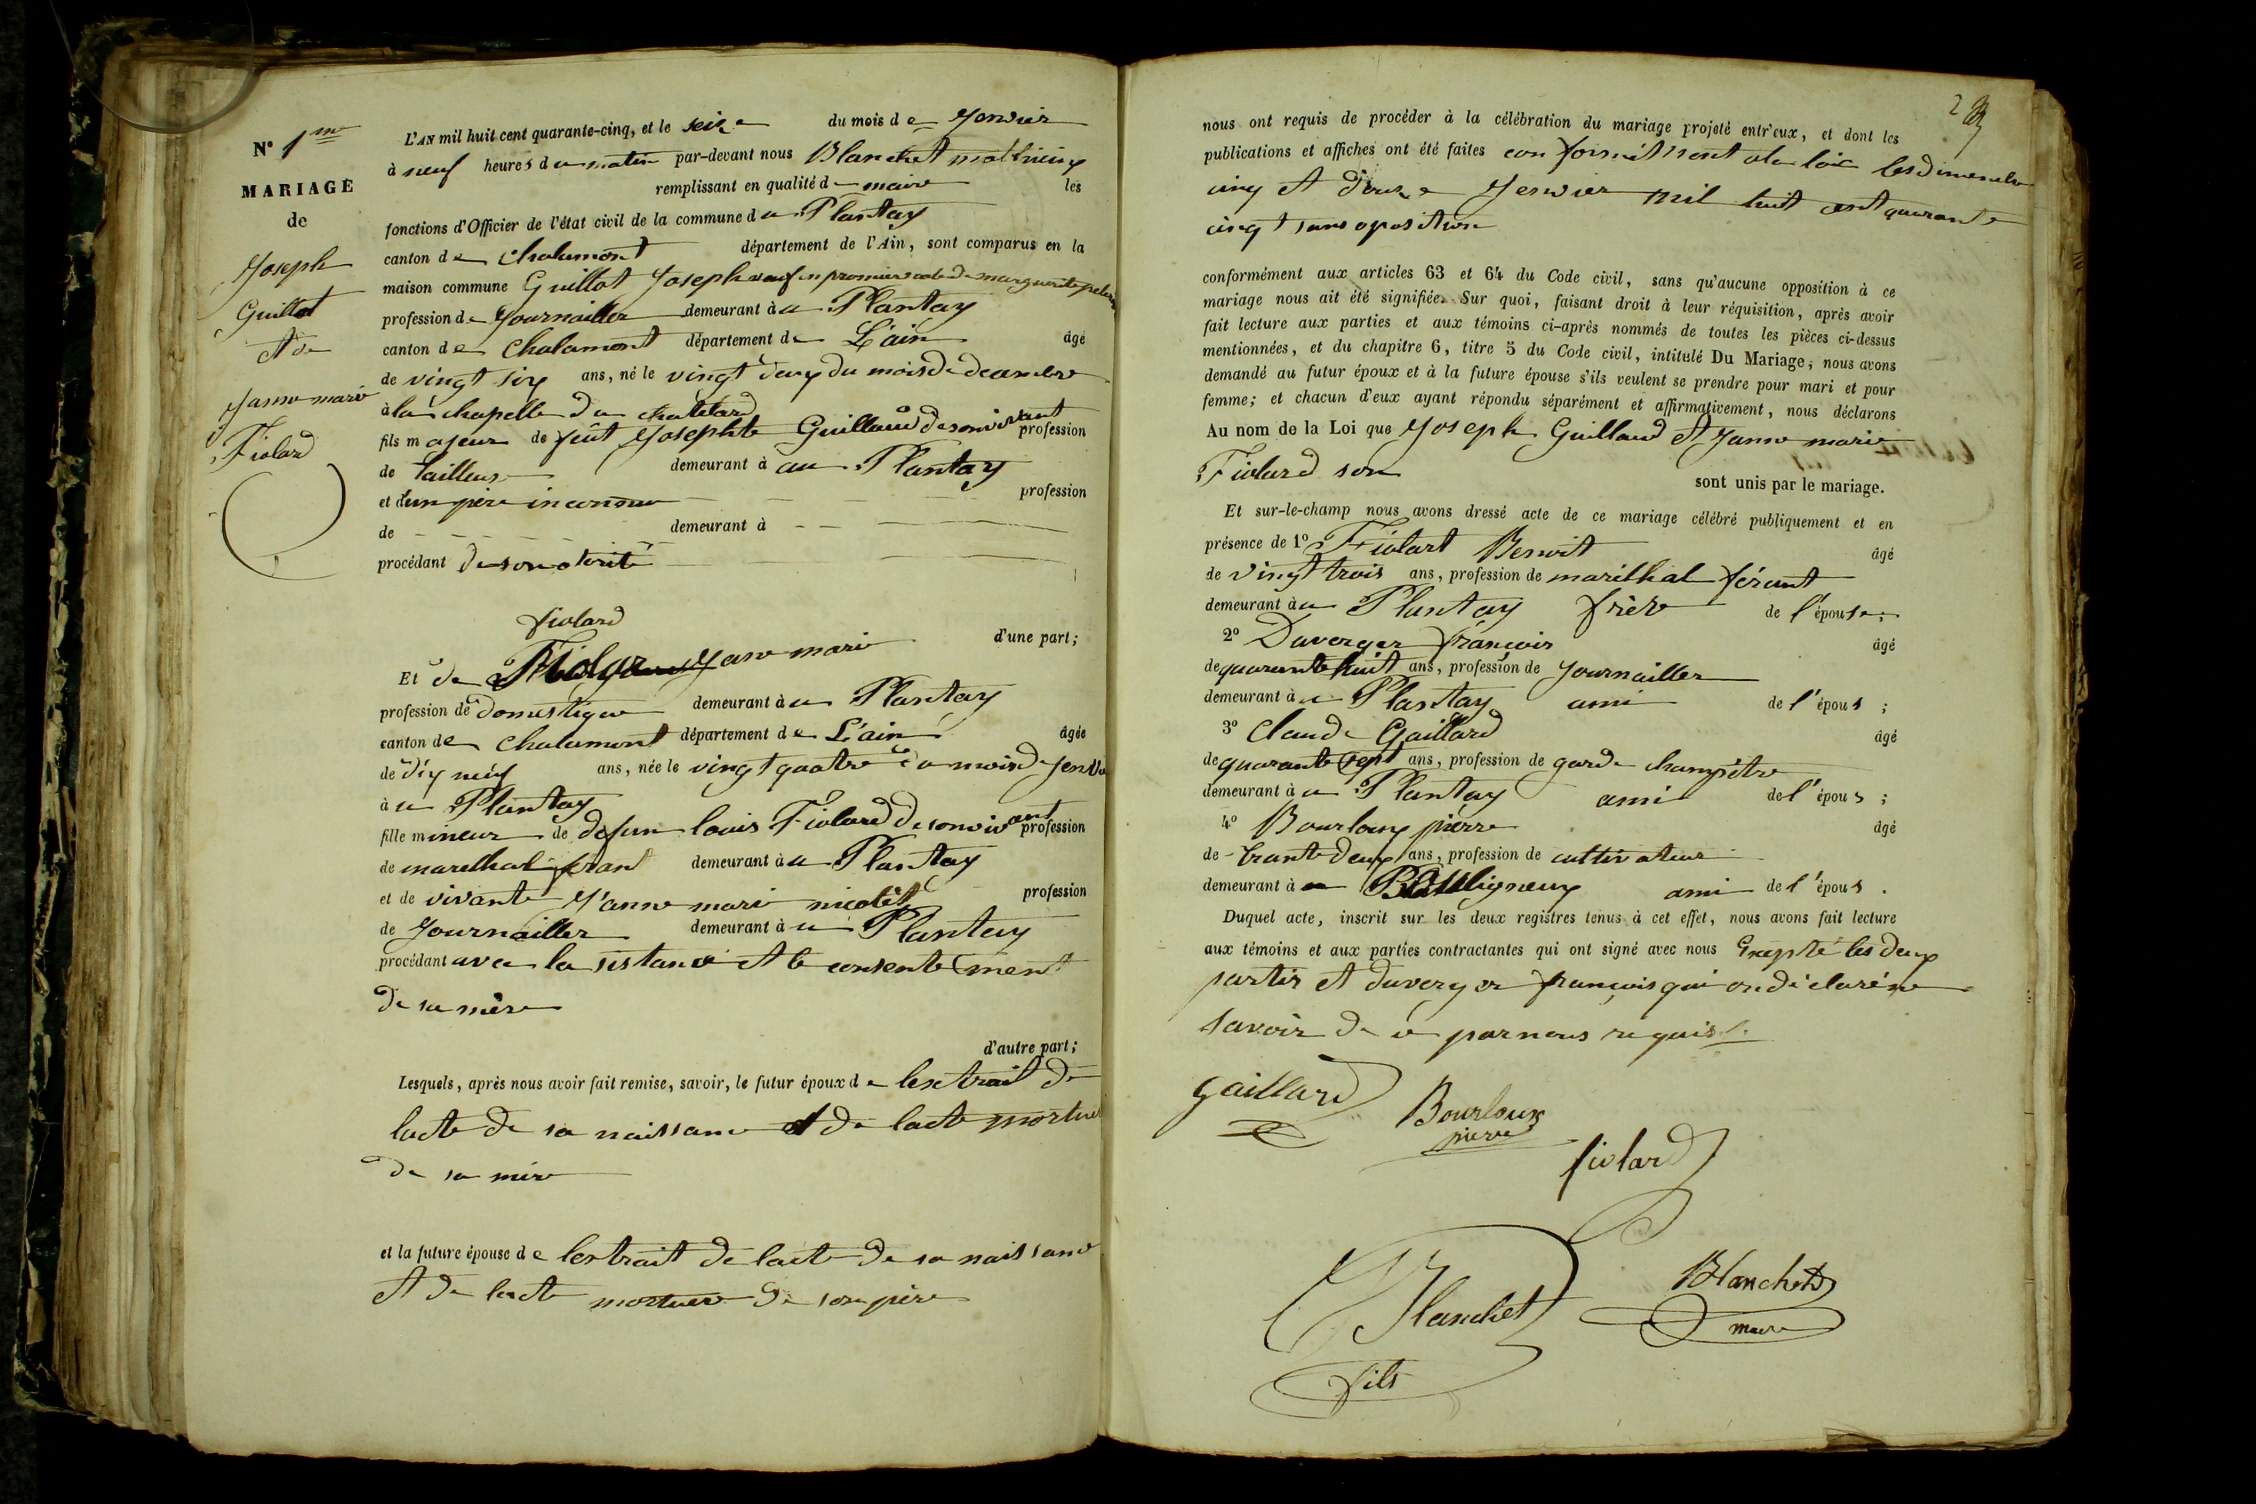 N° 1me
MARIAGE
de
Joseph
Guillot
et de
Janne marie
Fiolard
L'AN mil huit cent quarante-cinq, et le seize du mois de Janvier
à neuf heures du matin par-devant nous Blanchet mathieu
remplissant en qualité de maire les
fonctions d'Officier de l'état civil de la commune du Plantay
canton de chalamont département de l'Ain, sont comparus en la
maison commune Guillot Joseph veuf en promier de marguerite
profession de Journailler demeurant à u Plantay
canton de Chalamont département de L'ain âgé
de vingt six ans, né le vingt deux du mois de decembre
à la chapelle du chatelard
fils majeur de feût Josephte Guillaud de son vivant profession
de tailleur demeurant à au Plantay
et d'un père inconnu profession
de demeurant à
procédant de son otorité
d'une part;
fiolard
Et de Jane marie
profession de Domestique demeurant à u Plantay
canton de Chalamont département de L'ain âgée
de dix neuf ans, née le vingt quatre du mois de Janvie
à u Plantay
fille mineur de defun louis Fiolard de son vivant profession
de marethal ferant demeurant à u Plantay
et de vivante Janne marie nicolet profession
de Journailler demeurant à u Plantay
procédant avec la sistance et le consente ment
de sa mère
d'autre part;
Lesquels, après nous avoir fait remise, savoir, le futur époux de lextrait de
lacte de sa naissance et de lacte mortue
de sa mère
et la future épouse de lextrait de lacte de sa naissance
et de lacte mortuere de son père
2
nous ont requis de procéder à la célébration du mariage projeté entr'eux, et dont les
publications et affiches ont été faites conformément a la loie les dimenche
cinq et douze Janvier mil huit cent quarante
cinq sans oposition
conformément aux articles 63 et 64 du Code civil, sans qu'aucune opposition à ce
mariage nous ait été signifiée. Sur quoi, faisant droit à leur réquisition, après avoir
fait lecture aux parties et aux témoins ci-après nommés de toutes les pièces ci-dessus
mentionnées, et du chapitre 6, titre 5 du Code civil, intitulé Du Mariage, nous avons
demandé au futur époux et à la future épouse s'ils veulent se prendre pour mari et pour
femme; et chacun d'eux ayant répondu séparément et affirmativement, nous déclarons
Au nom de la Loi que Joseph Guillaud et Janne marie
Fiolard son
sont unis par le mariage.
Et sur-le-champ nous avons dressé acte de ce mariage célébré publiquement et en
présence de 1° Fiolart Benoit âgé
de vingt trois ans, profession de maréthal férant
demeurant à u Plantay frère de l'épouse;
2° Duverger françois âgé
de quarante huit ans, profession de Journailler
demeurant à u Plantay ami de l'épous ;
3° Claude Gaillard âgé
de quarante sept ans, profession de garde champêtre
demeurant à u Plantay ami de l'épous ;
4° Bourloux pièrre âgé
de trante deux ans, profession de cultivateur
demeurant à Bouligneux ami de l'épous .
Duquel acte, inscrit sur les deux registres tenus à cet effet, nous avons fait lecture
aux témoins et aux parties contractantes qui ont signé avec nous Exepté les deux
partis et duverger françois qui on déclaré ne
savoir de ce par nous requis.
gaillard
Bourloux
pierre
fiolard
Blanchet
fils
Blanchet
maire